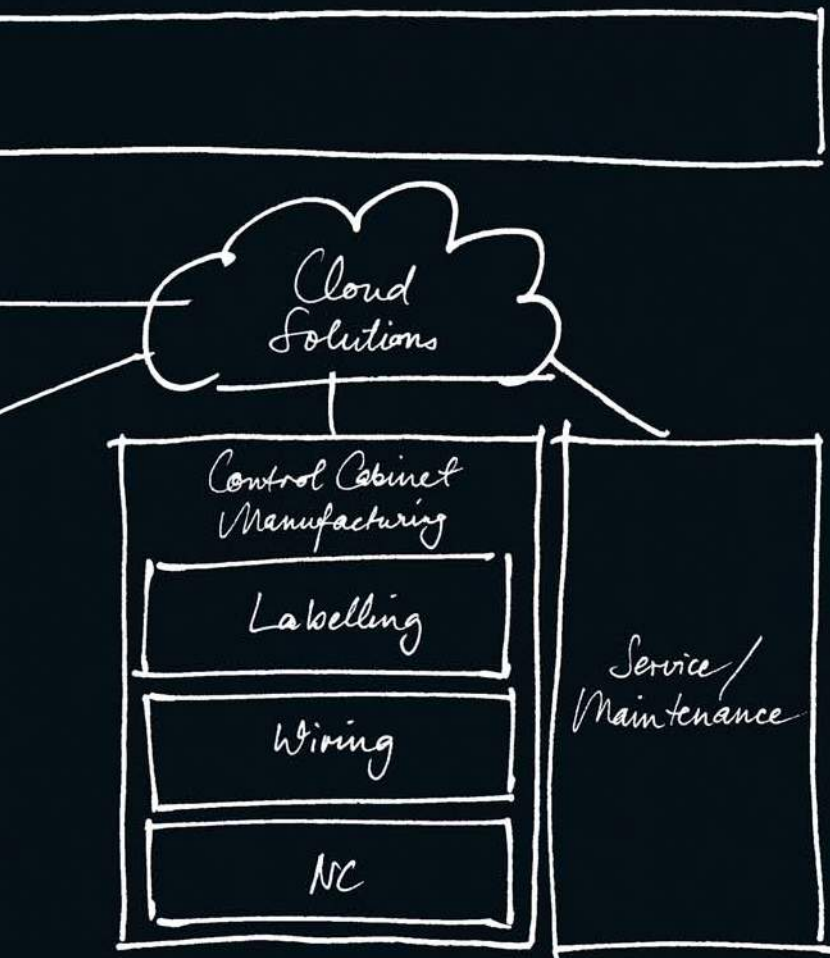 Cloud
Solutions
Control Cabinet
Manufacturing
Labelling
Wiring
NC
Service/
Maintenance